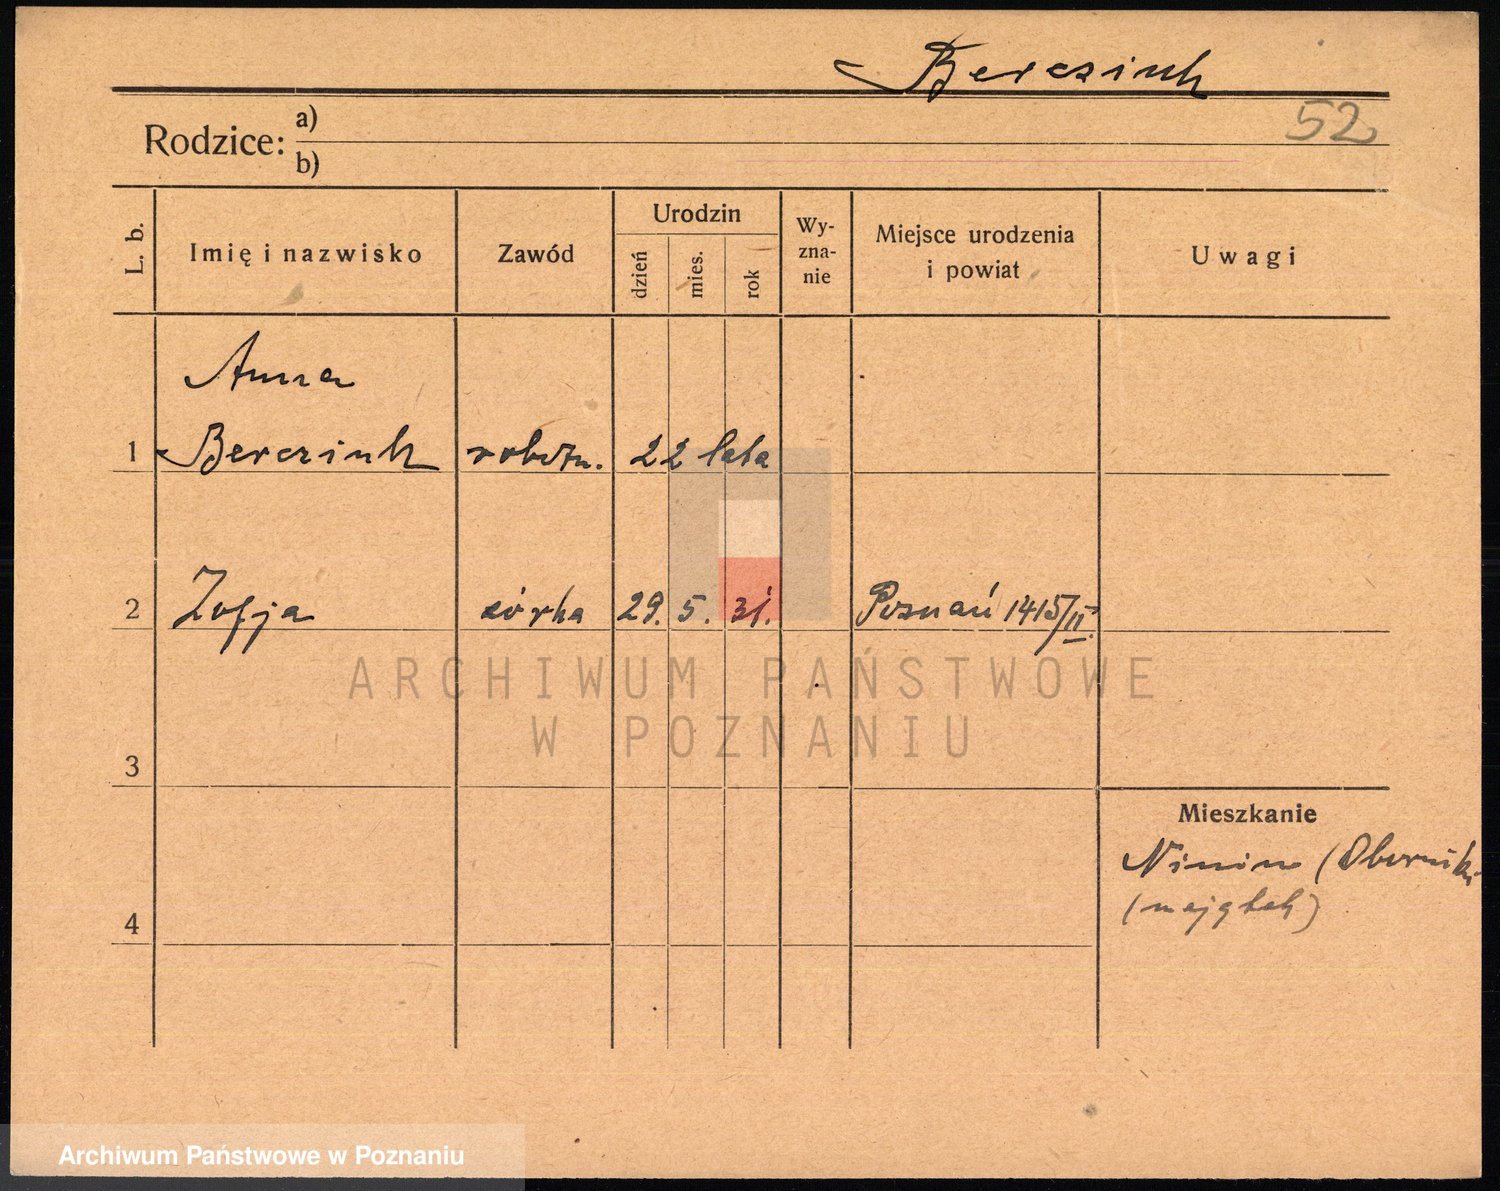 Bercziuk
52
Rodzice: a)
b)
L. b.
Imię i nazwisko
Zawód
Urodzin
dzień
mies.
rok
Wy-
zna-
nie
Miejsce urodzenia
i powiat
Uwagi
Anna
1 Bercziuk robotn. 22 lata
2 Zofja córka 29. 5. 31. Poznań 1415/II.
ARCHIWUM PAŃSTWOWE
W POZNANIU
3
Mieszkanie
Ninin (Oborniki
(majątek)
4
Archiwum Państwowe w Poznaniu